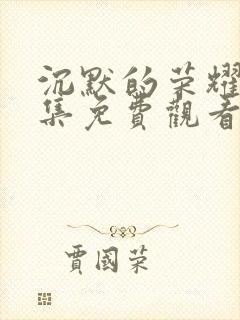 沉默的荣耀
集免費觀看
賈國荣